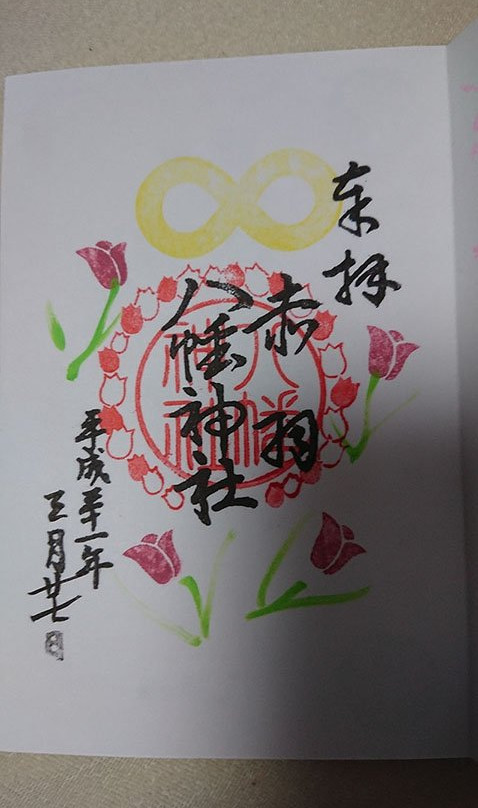 奉拝
赤羽
八幡神社
平成三十一年
三月廿七日
八幡
神社